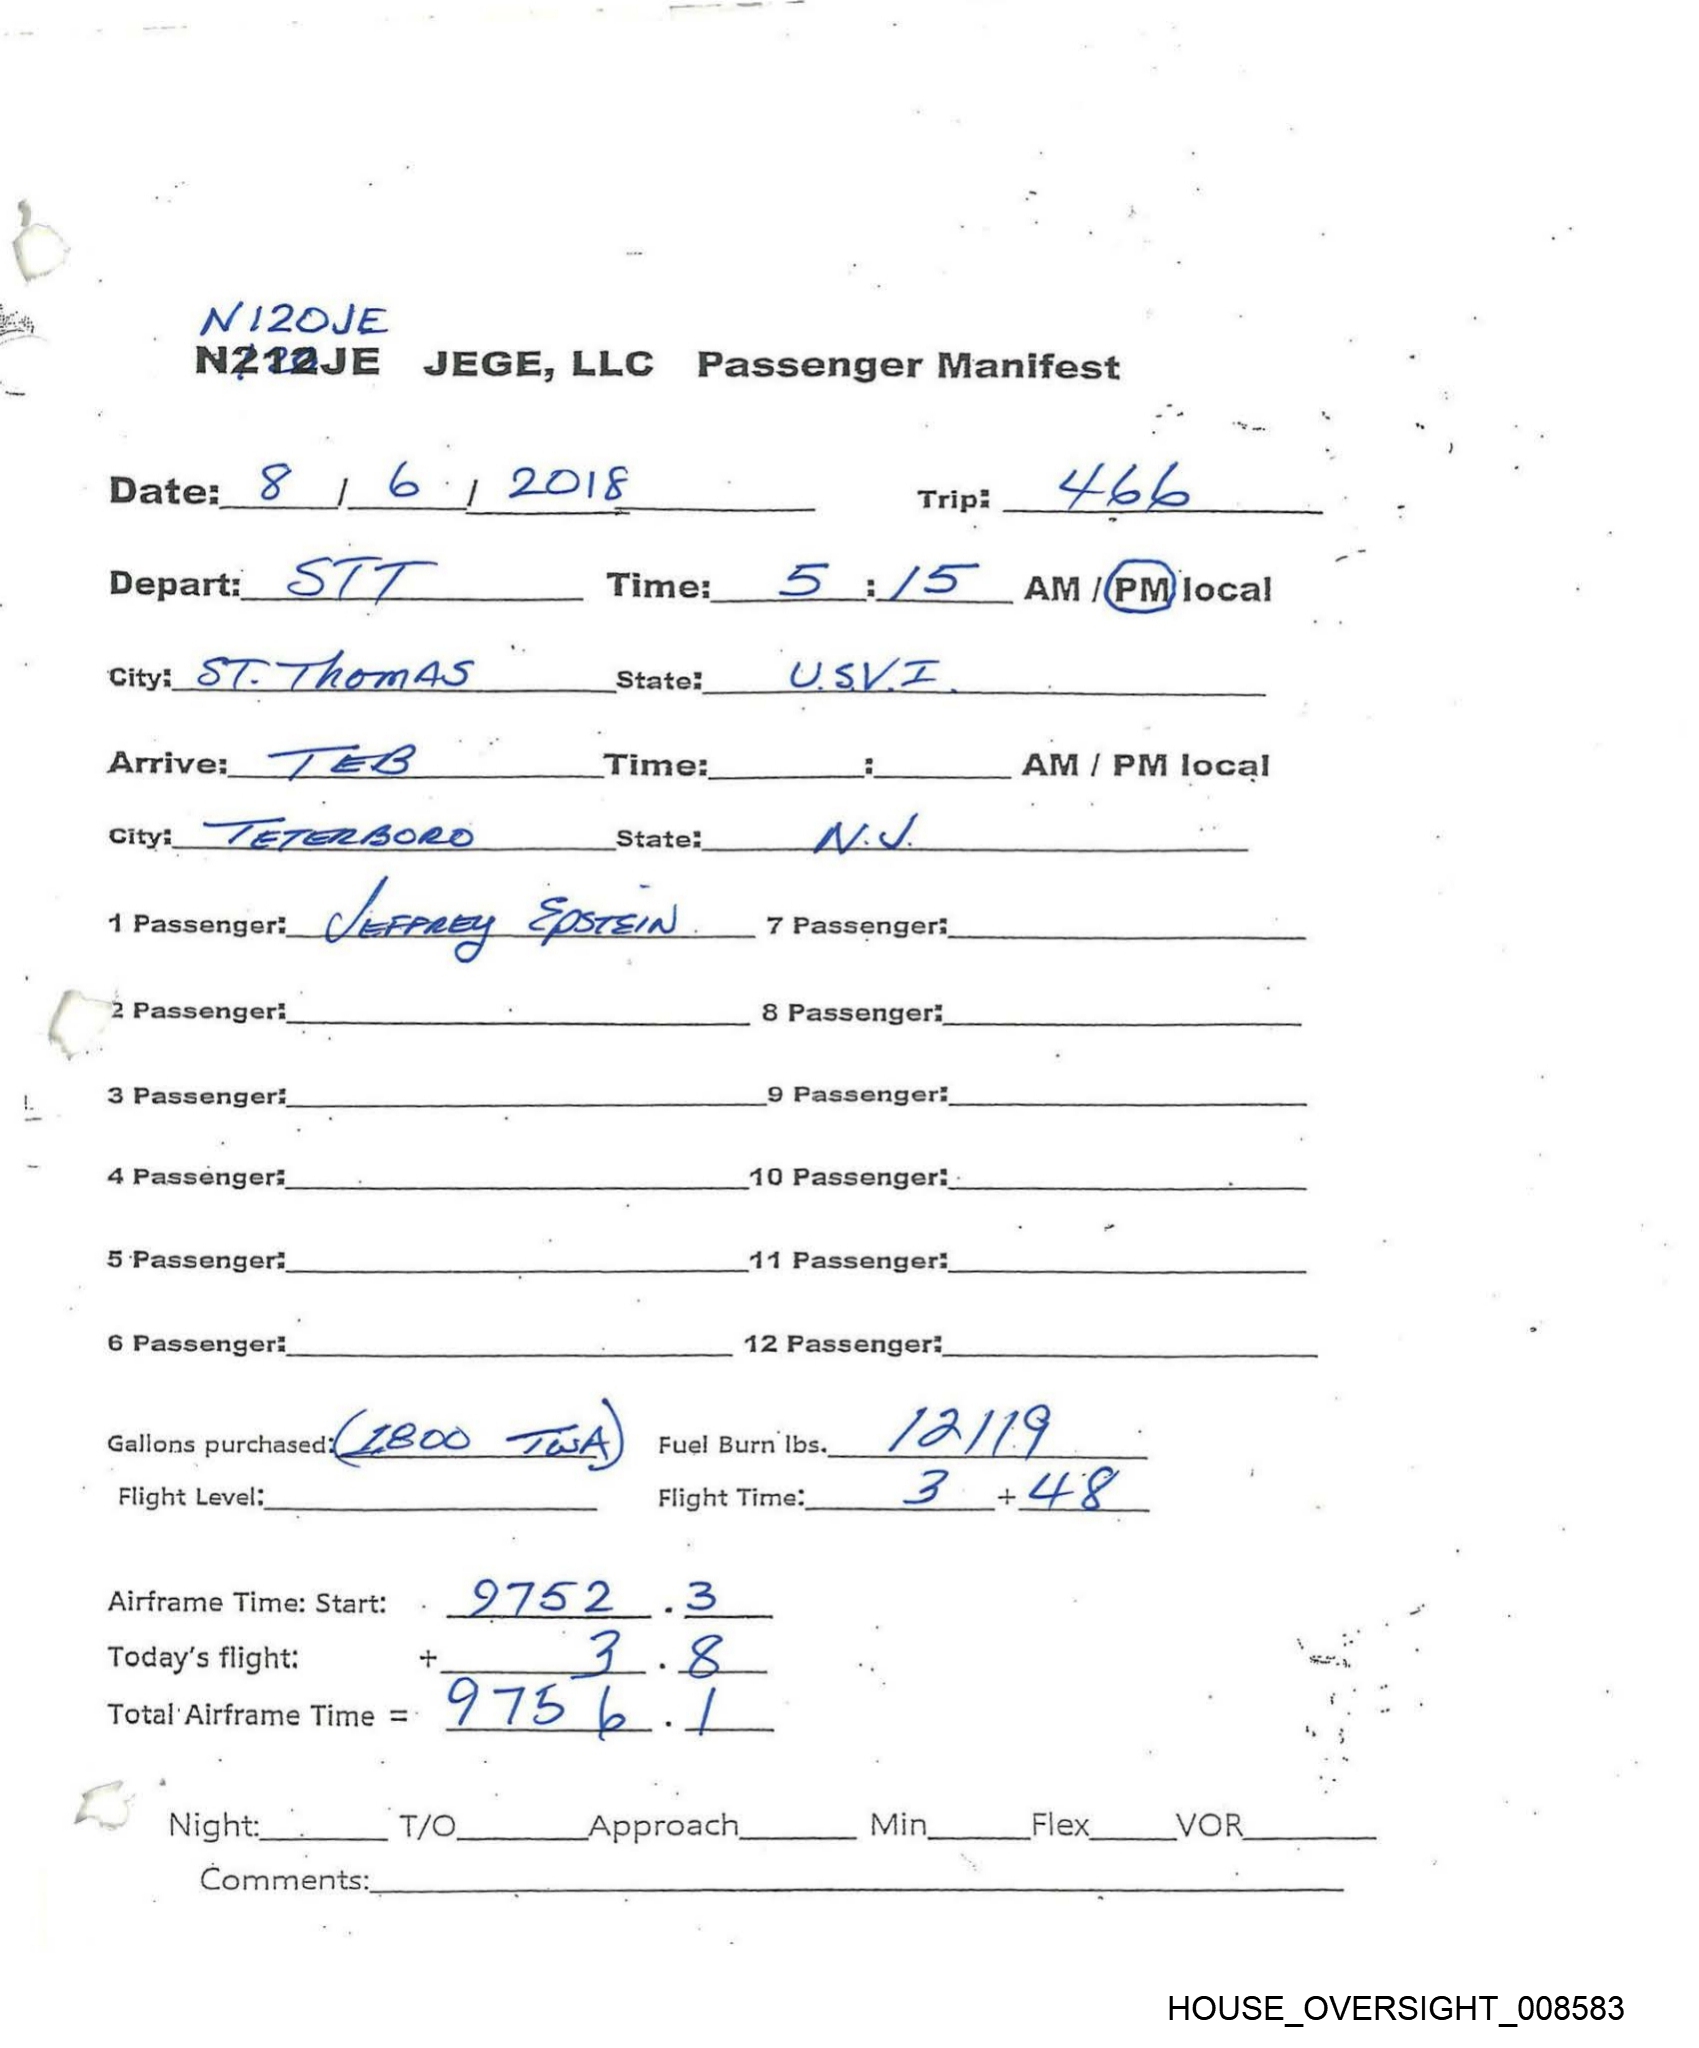 N120JE
N212JE JEGE, LLC Passenger Manifest
Date: 8 / 6 / 2018 Trip: 466
Depart: STT Time: 5 : 15 AM / PM local
City: ST. Thomas State: U.S.V.I.
Arrive: TEB Time: : AM / PM local
City: TETERBORO State: N.J.
1 Passenger: JEFFREY EPSTEIN 7 Passenger:
2 Passenger: 8 Passenger:
3 Passenger: 9 Passenger:
4 Passenger: 10 Passenger:
5 Passenger: 11 Passenger:
6 Passenger: 12 Passenger:
Gallons purchased: (1800 TWA) Fuel Burn lbs. 12119
Flight Level: Flight Time: 3 + 48
Airframe Time: Start: 9752 . 3
Today's flight: + 3 . 8
Total Airframe Time = 9756 . 1
Night: T/O Approach Min Flex VOR
Comments:
HOUSE_OVERSIGHT_008583